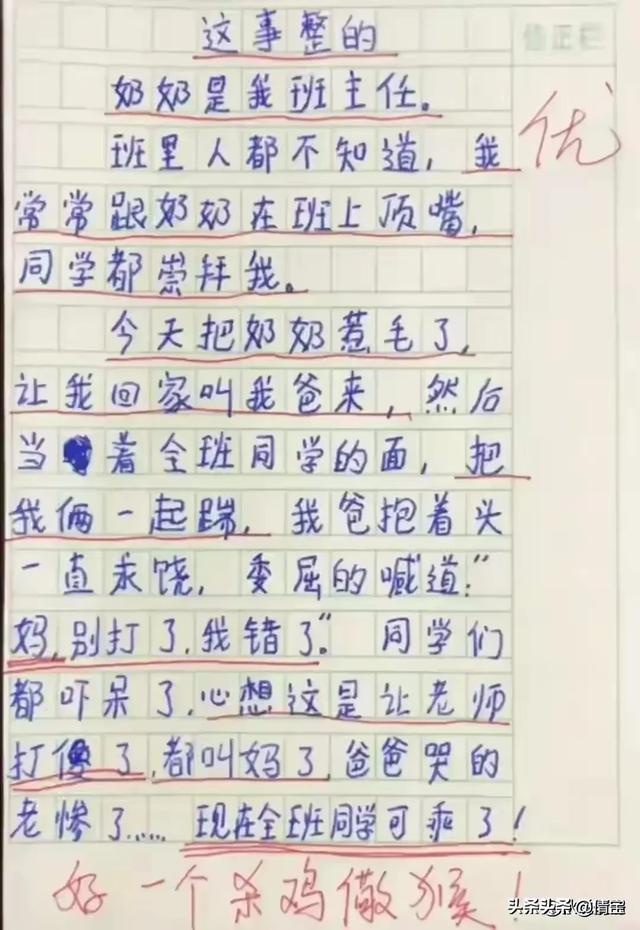 这事整的
修正栏
奶奶是我班主任。
班里人都不知道，我
优
常常跟奶奶在班上顶嘴，
同学都崇拜我。
今天把奶奶惹毛了，
让我回家叫我爸来，然后
当着全班同学的面，把
我俩一起踹，我爸抱着头
一直求饶，委屈的喊道："
妈，别打了，我错了"。同学们
都吓呆了，心想这是让老师
打傻了，都叫妈了，爸爸哭的
老惨了……现在全班同学可乖了！
好一个杀鸡儆猴！
头条 @倩宝